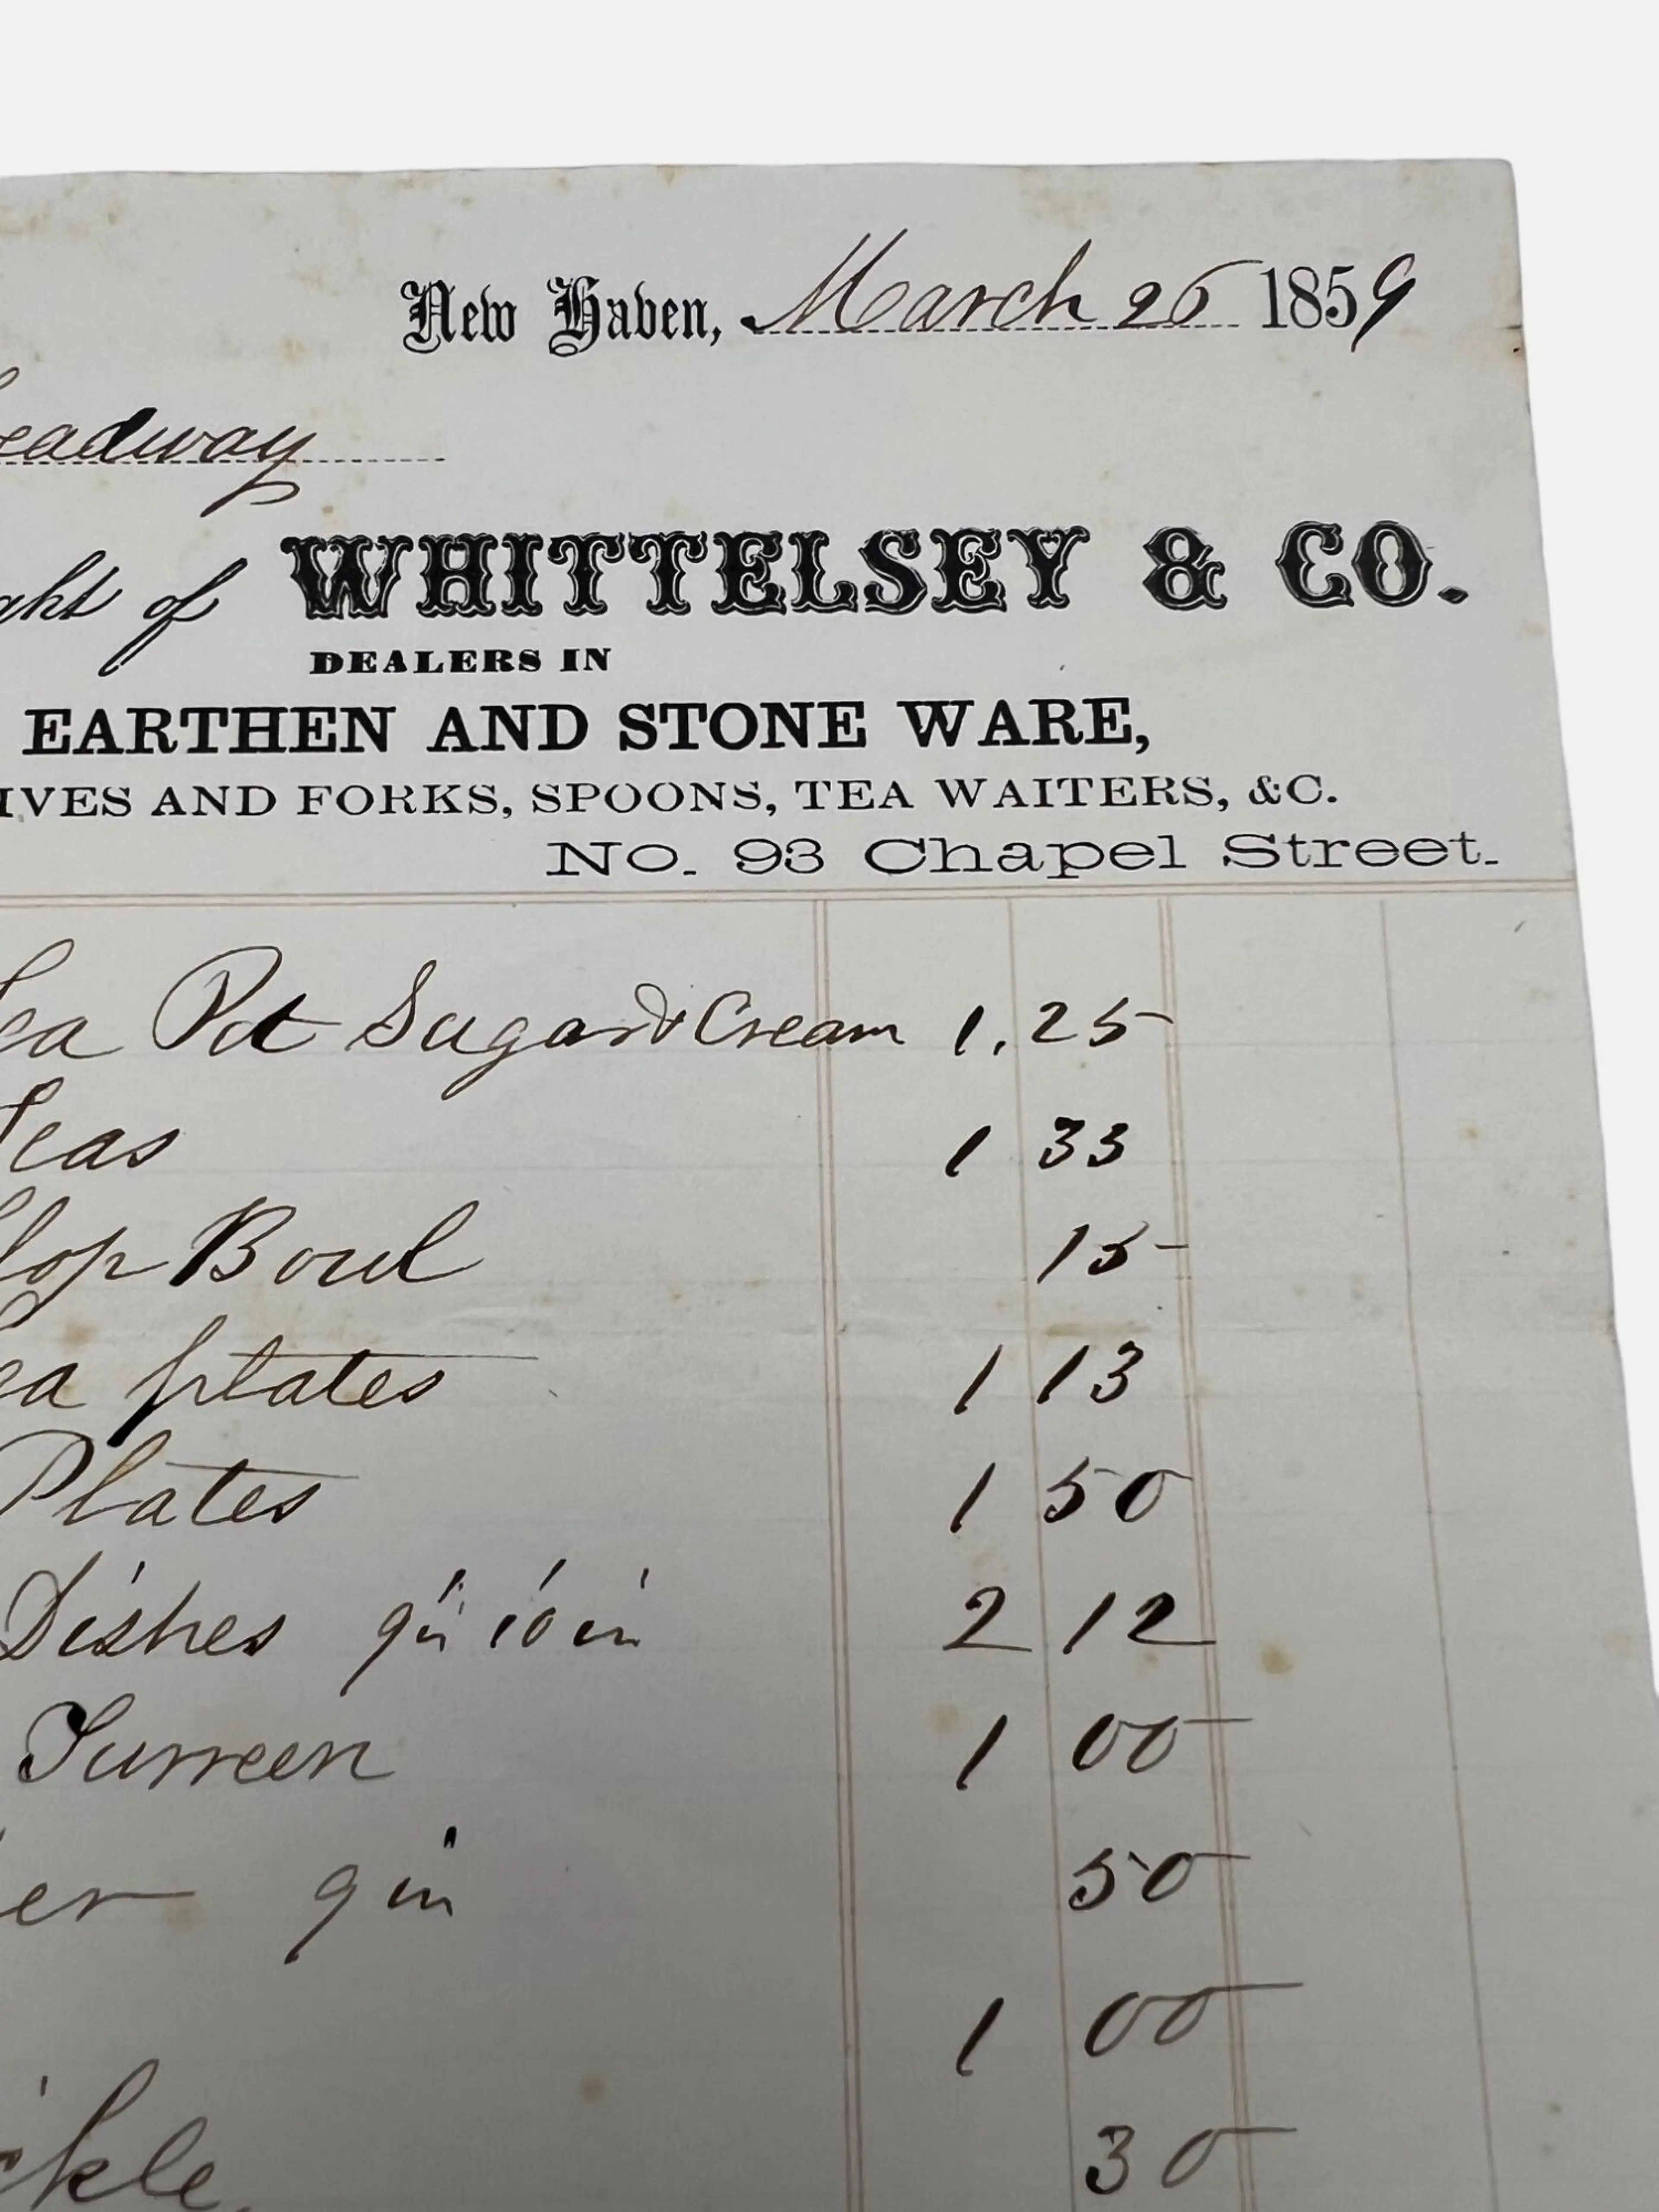 New Haven, March 26 1859
eadway
ght of WHITTELSEY & CO.
DEALERS IN
EARTHEN AND STONE WARE,
IVES AND FORKS, SPOONS, TEA WAITERS, &C.
No. 93 Chapel Street.
ea Pot Sugar & Cream 1.25
Teas 1 33
lop Bowl 15
ea plates 1 13
Plates 1 50
Dishes 9in 10in 2 12
Turreen 1 00
er 9in 50
1 00
ckle 30